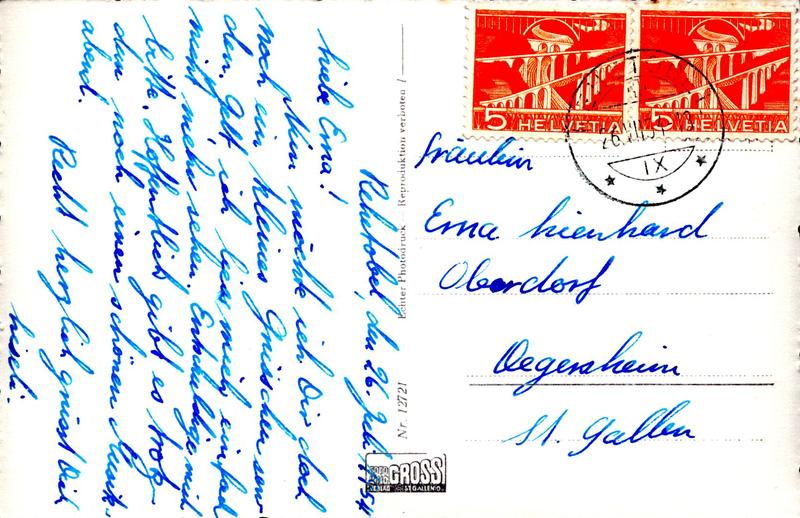 Rehetobel, den 26. Juli 1954
Liebe Erna!
Nun möchte ich Dir doch
noch ein kleines Grüsschen sen-
den. Gelt, ich liess mich einfach
nicht mehr sehen. Entschuldige mich
bitte. Hoffentlich gibt es trotz-
dem noch einen schönen Musik-
abend.
Recht herzlich grüsst Dich
Liseli.
Echter Photodruck — Reproduktion verboten /
Nr. 12721
FOTO
GROSS
VERLAG ST. GALLEN O.
5 HELVETIA
5 HELVETIA
IX
Fräulein
Erna Lienhard
Oberdorf
Degersheim
St. Gallen